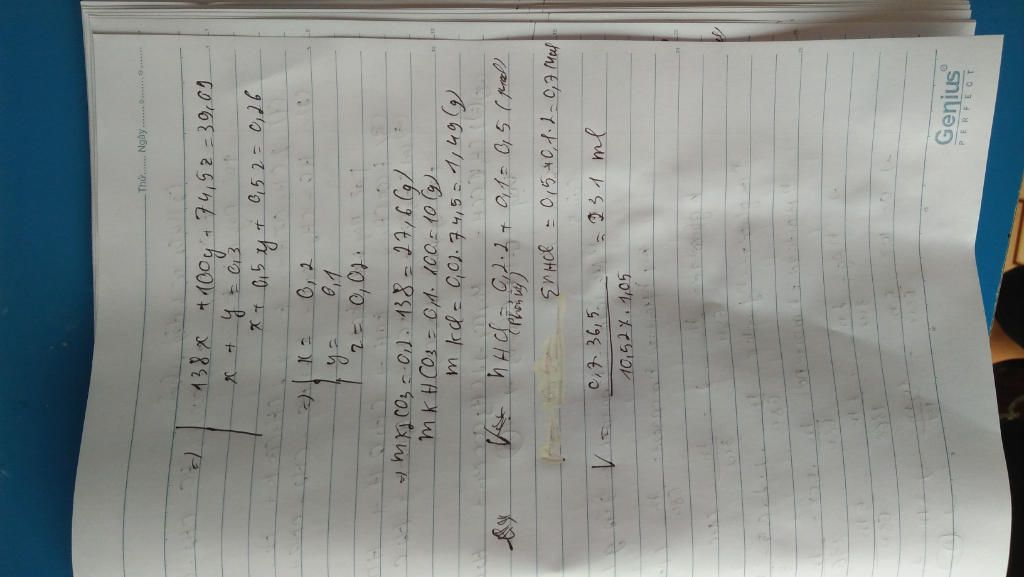 Thứ....... Ngày.........
Genius
PERFECT
=> 138x + 100y + 74,5z = 39,09
x + y = 0,3
x + 0,5y + 0,5z = 0,26
=> x = 0,2
y = 0,1
z = 0,02.
=> mK2CO3 = 0,2. 138 = 27,6 (g)
mKHCO3 = 0,1. 100 = 10 (g).
mKCl = 0,02. 74,5 = 1,49 (g)
nHCl = 0,2.2 + 0,1 = 0,5 (mol)
(Phản ứ)
ΣnHCl = 0,5 + 0,1.2 = 0,7 mol
V = 0,7. 36,5. / 10,52%. 1,05 = 231 ml